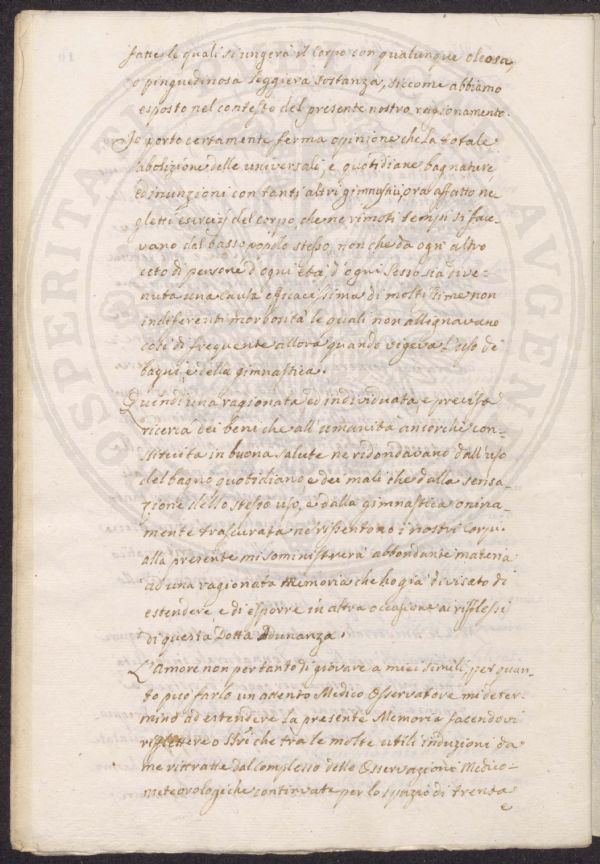 fatte le quali si ungerà il Corpo con qualunque oleosa,
o pinguedinosa leggiera sostanza, siccome abbiamo
esposto nel contesto del presente nostro ragionamento.
Io porto certamente ferma opinione che la totale
abolizione delle universali, e quotidiane bagnature
ed inunzioni con tanti altri gimnastici, ora affatto ne-
gletti esercizj del corpo, che ne rimoti tempi si face-
vano dal basso popolo stesso, non che da ogni altro
ceto di persone d'ogni età, d'ogni sesso sia dive-
nuta una causa efficacissima di molti sime non
indiferenti morbosità le quali non allignavano
così di frequente allora quando vigeva l'uso de
bagni, e della gimnastica.
Quindi una ragionata ed individuata, e precisa
ricerca dei beni che all'umanità ancorchè con-
stituita in buona salute ne ridondavano dall'uso
del bagno quotidiano e dei mali che dalla
zione dello stesso uso, e dalla gimnastica onina-
mente trascurata ne rissentono i nostri Corpi
alla presente mi somministrerà abbondante materia
ad una ragionata Memoria che ho già divisato di
estendere e di esporre in altra occasione ai rifflessi
di questa Dotta Adunanza.
L'Amore non pertanto di giovare a miei simili, per quan-
to può farlo un attento Medico Osservatore mi deter-
minò ad estendere la presente Memoria facendovi
rifflettere o SSri che tra le molte utili induzioni da
me rittratte dal Complesso delle Osservazioni Medico-
meteorologiche continuate per lo spazio di trenta
e
PROSPERITATI AVGENDAE